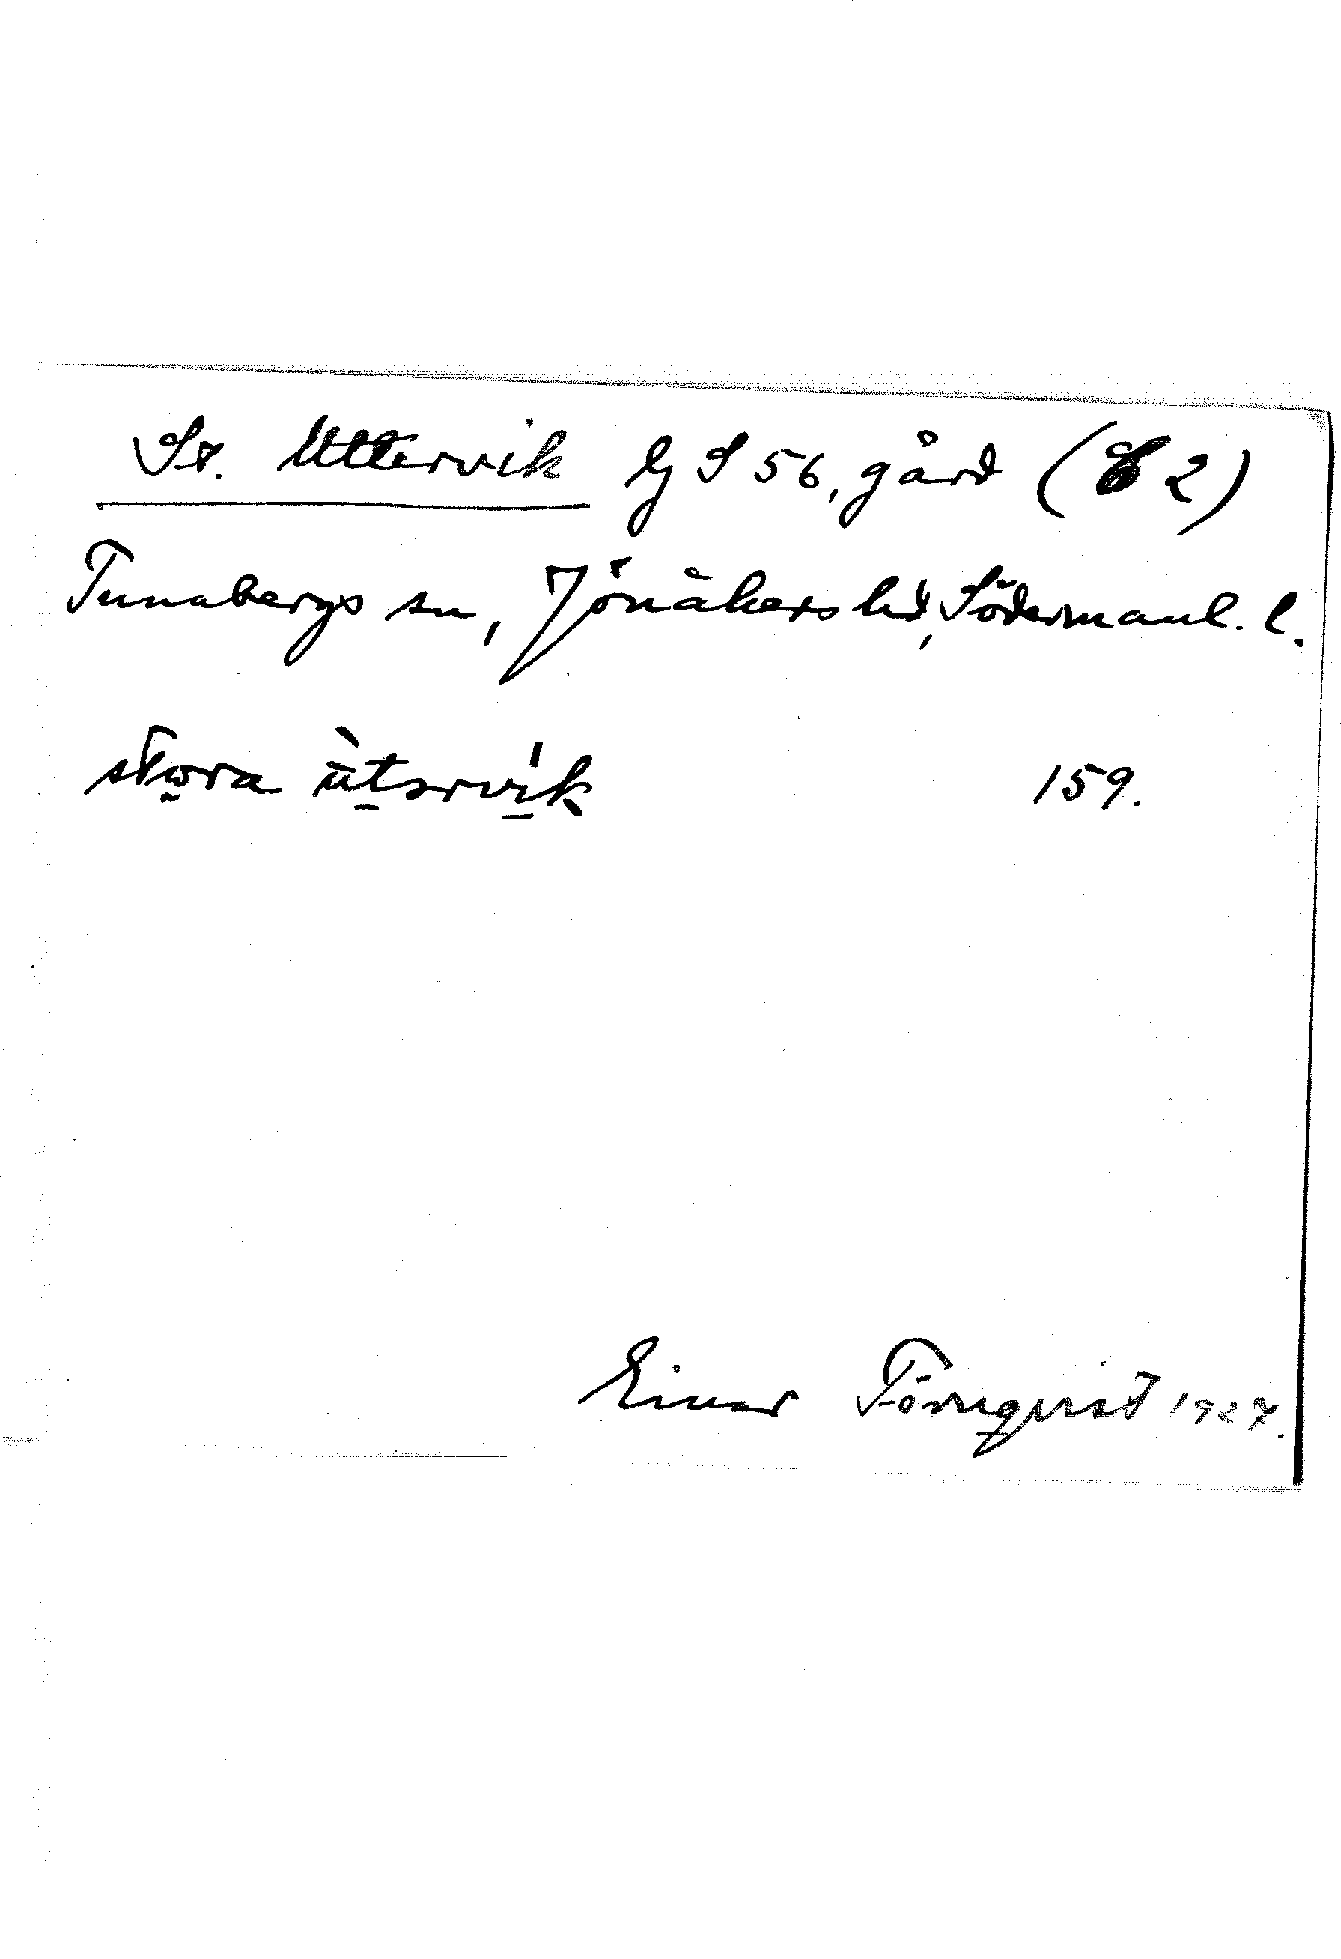 St. Uttervik lj S 56, gård (C 2)
Tunabergs sn, Jönåkers hd, Södermanl. l.
stora ùtərvík 159.
Einar Törnqvist 1927.